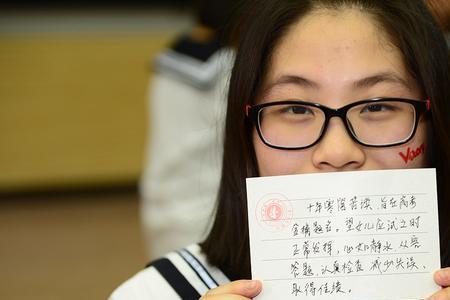 十年寒窗苦读，旨在高考
金榜题名。望女儿应试之时
正常发挥，心如静水，从容
答题，认真检查，减少失误，
取得佳绩。